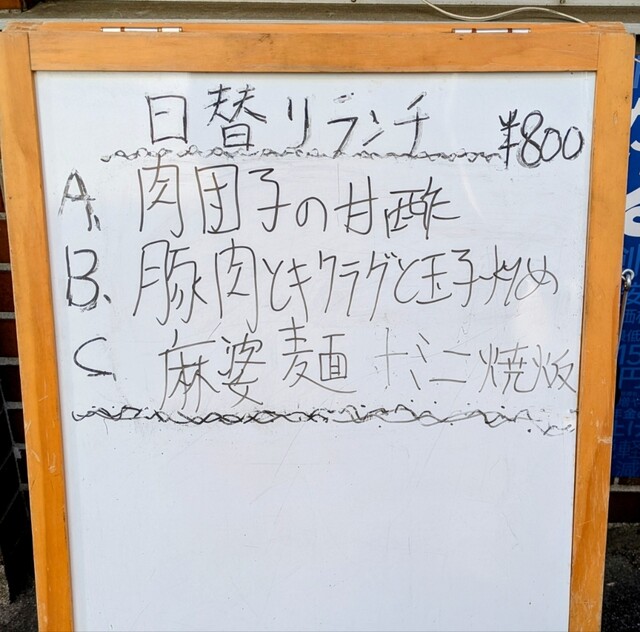 日替リランチ ¥800
A. 肉団子の甘酢
B. 豚肉とキクラゲと玉子炒め
C 麻婆麺 ミニ焼飯